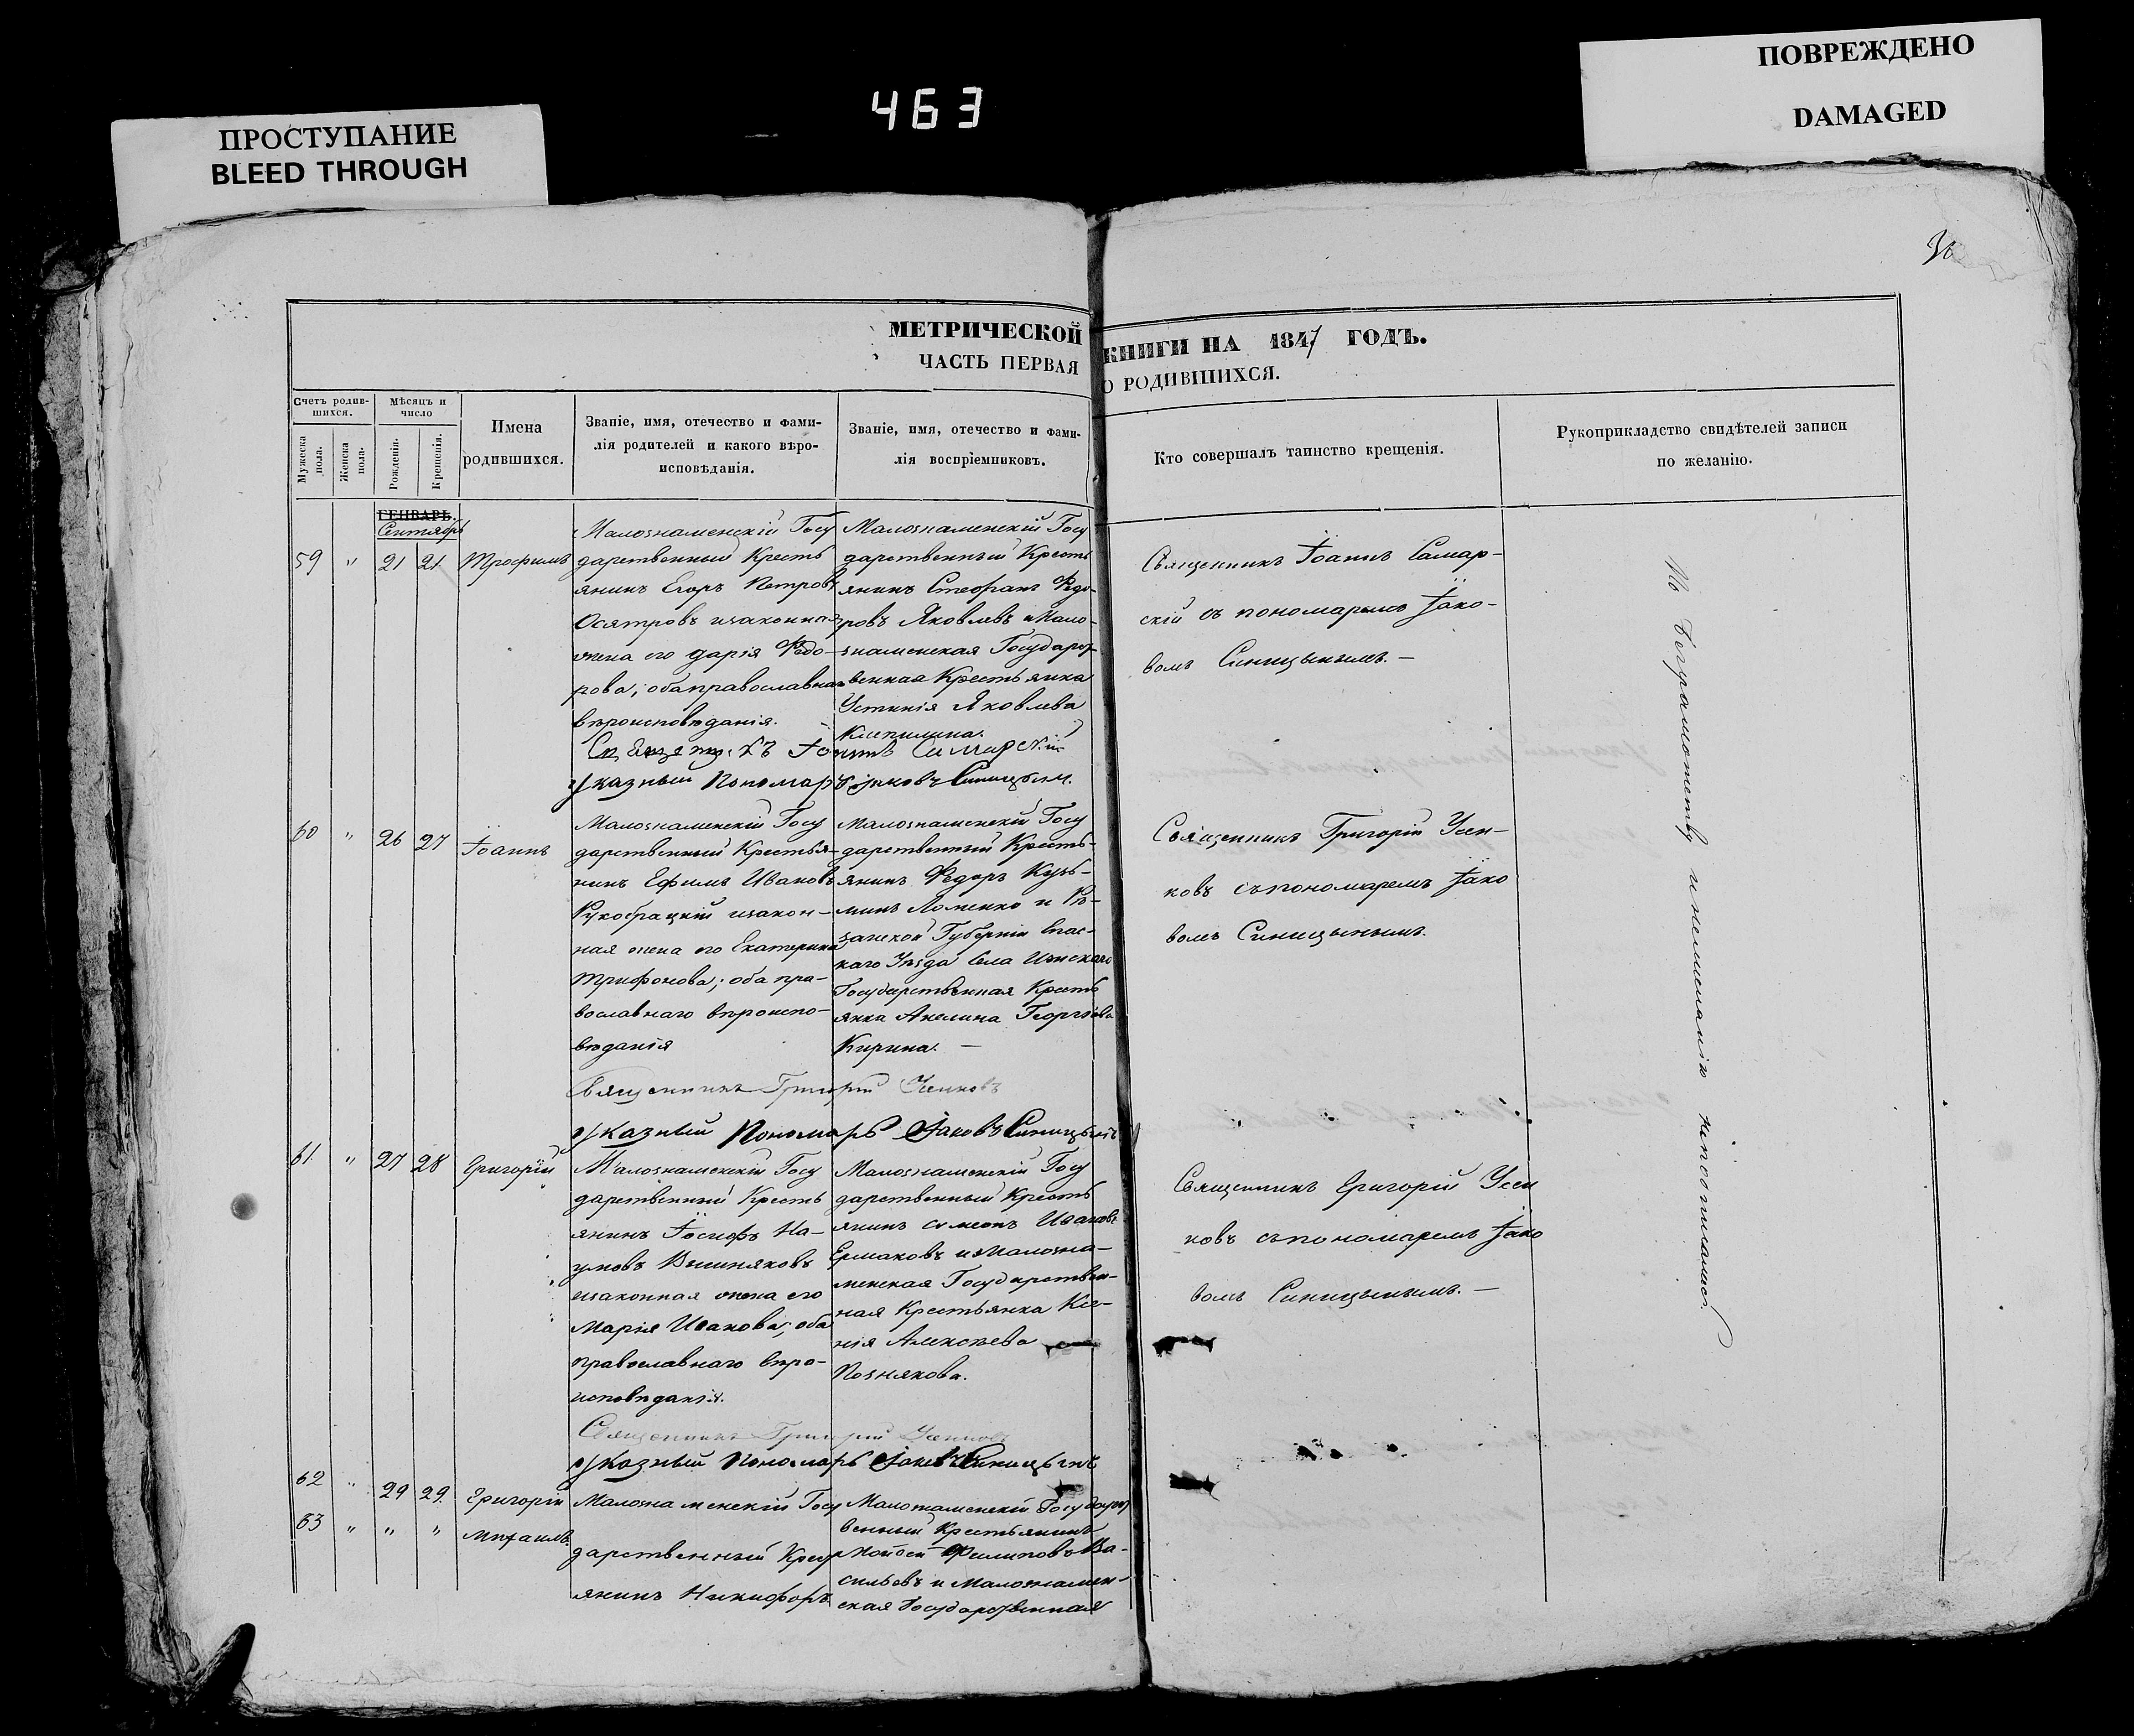 ПРОСТУПАНИЕ
BLEED THROUGH
463
ПОВРЕЖДЕНО
DAMAGED
МЕТРИЧЕСКОЙ КНИГИ НА 1847 ГОДЪ.
ЧАСТЬ ПЕРВАЯ О РОДИВШИХСЯ.
Счетъ родившихся.
Мужеска пола.
Женска пола.
Мѣсяцъ и число
Рожденія.
Крещенія.
Имена
родившихся.
Званіе, имя, отечество и фами-
лія родителей и какого вѣро-
исповѣданія.
Званіе, имя, отечество и фами-
лія воспріемниковъ.
Кто совершалъ таинство крещенія.
Рукоприкладство свидѣтелей записи
по желанію.
ГЕНВАРЬ.
Сентябрь
59 " 21 21 Трофимъ
Малознаменскій Госу
дарственный Кресть
янинъ Егоръ Петровъ
Осятровъ изаконная
жена его Дарія Федо-
рова; оба православнаго
вѣроисповѣданія.
Малознаменскій Госу
дарственный Кресть
янинъ Стефанъ Федо-
ровъ Яковлевъ и Мало-
знаменская Государст
венная Крестьянка
Устинія Яковлева
Священникъ Іоаннъ Самар-
скій съ пономаремъ Іако-
вомъ Синицынымъ. —
Священникъ Іоаннъ Самарскій
Указный Пономарь Іаковъ Синицын.
60 " 26 27 Іоаннъ
Малознаменскій Госу
дарственный Крестья-
нинъ Ефимъ Ивановъ
изакон-
ная жена его Екатерина
Трифонова; оба пра-
вославнаго вѣроиспо-
вѣданія
Малознаменскій Госу
дарственный Кресть-
янинъ Федоръ Кузь-
минъ Ломенко и Ря-
занской Губерніи Спас-
каго Уѣзда Села Ижскаго
Государственная Кресть
янка Акелина Георгіева
Кирина. —
Священникъ Григорій Усен-
ковъ съ пономаремъ Іако
вомъ Синицынымъ.
Священникъ Григорій Усенковъ
Указный Пономарь Іаковъ Синицынъ
61 " 27 28 Григорій
Малознаменскій Госу
дарственный Кресть
янинъ Іосифъ На-
умовъ Вишняковъ
изаконная жена его
Марія Иванова; оба
православнаго вѣро-
исповѣданія.
Малознаменскій Госу
дарственный Кресть
янинъ Симеонъ Ивановъ
Ермаковъ и Малозна-
менская Государствен-
ная Крестьянка Ксе-
нія Алексѣева
Познякова.
Священникъ Григорій Усен
ковъ съ пономаремъ Іако
вомъ Синицынымъ. —
Священникъ Григорій Усенковъ
Указный Пономарь Іаковъ Синицынъ
62 " 29 29 Григорій
63 " " " Михаилъ
Малознаменскій Госу
дарственный Крест
янинъ Никифоръ
Малознаменскій Государст
венный Крестьянинъ
Мойсей Филиповъ Ва-
сильевъ и Малознамен-
ская Государственная